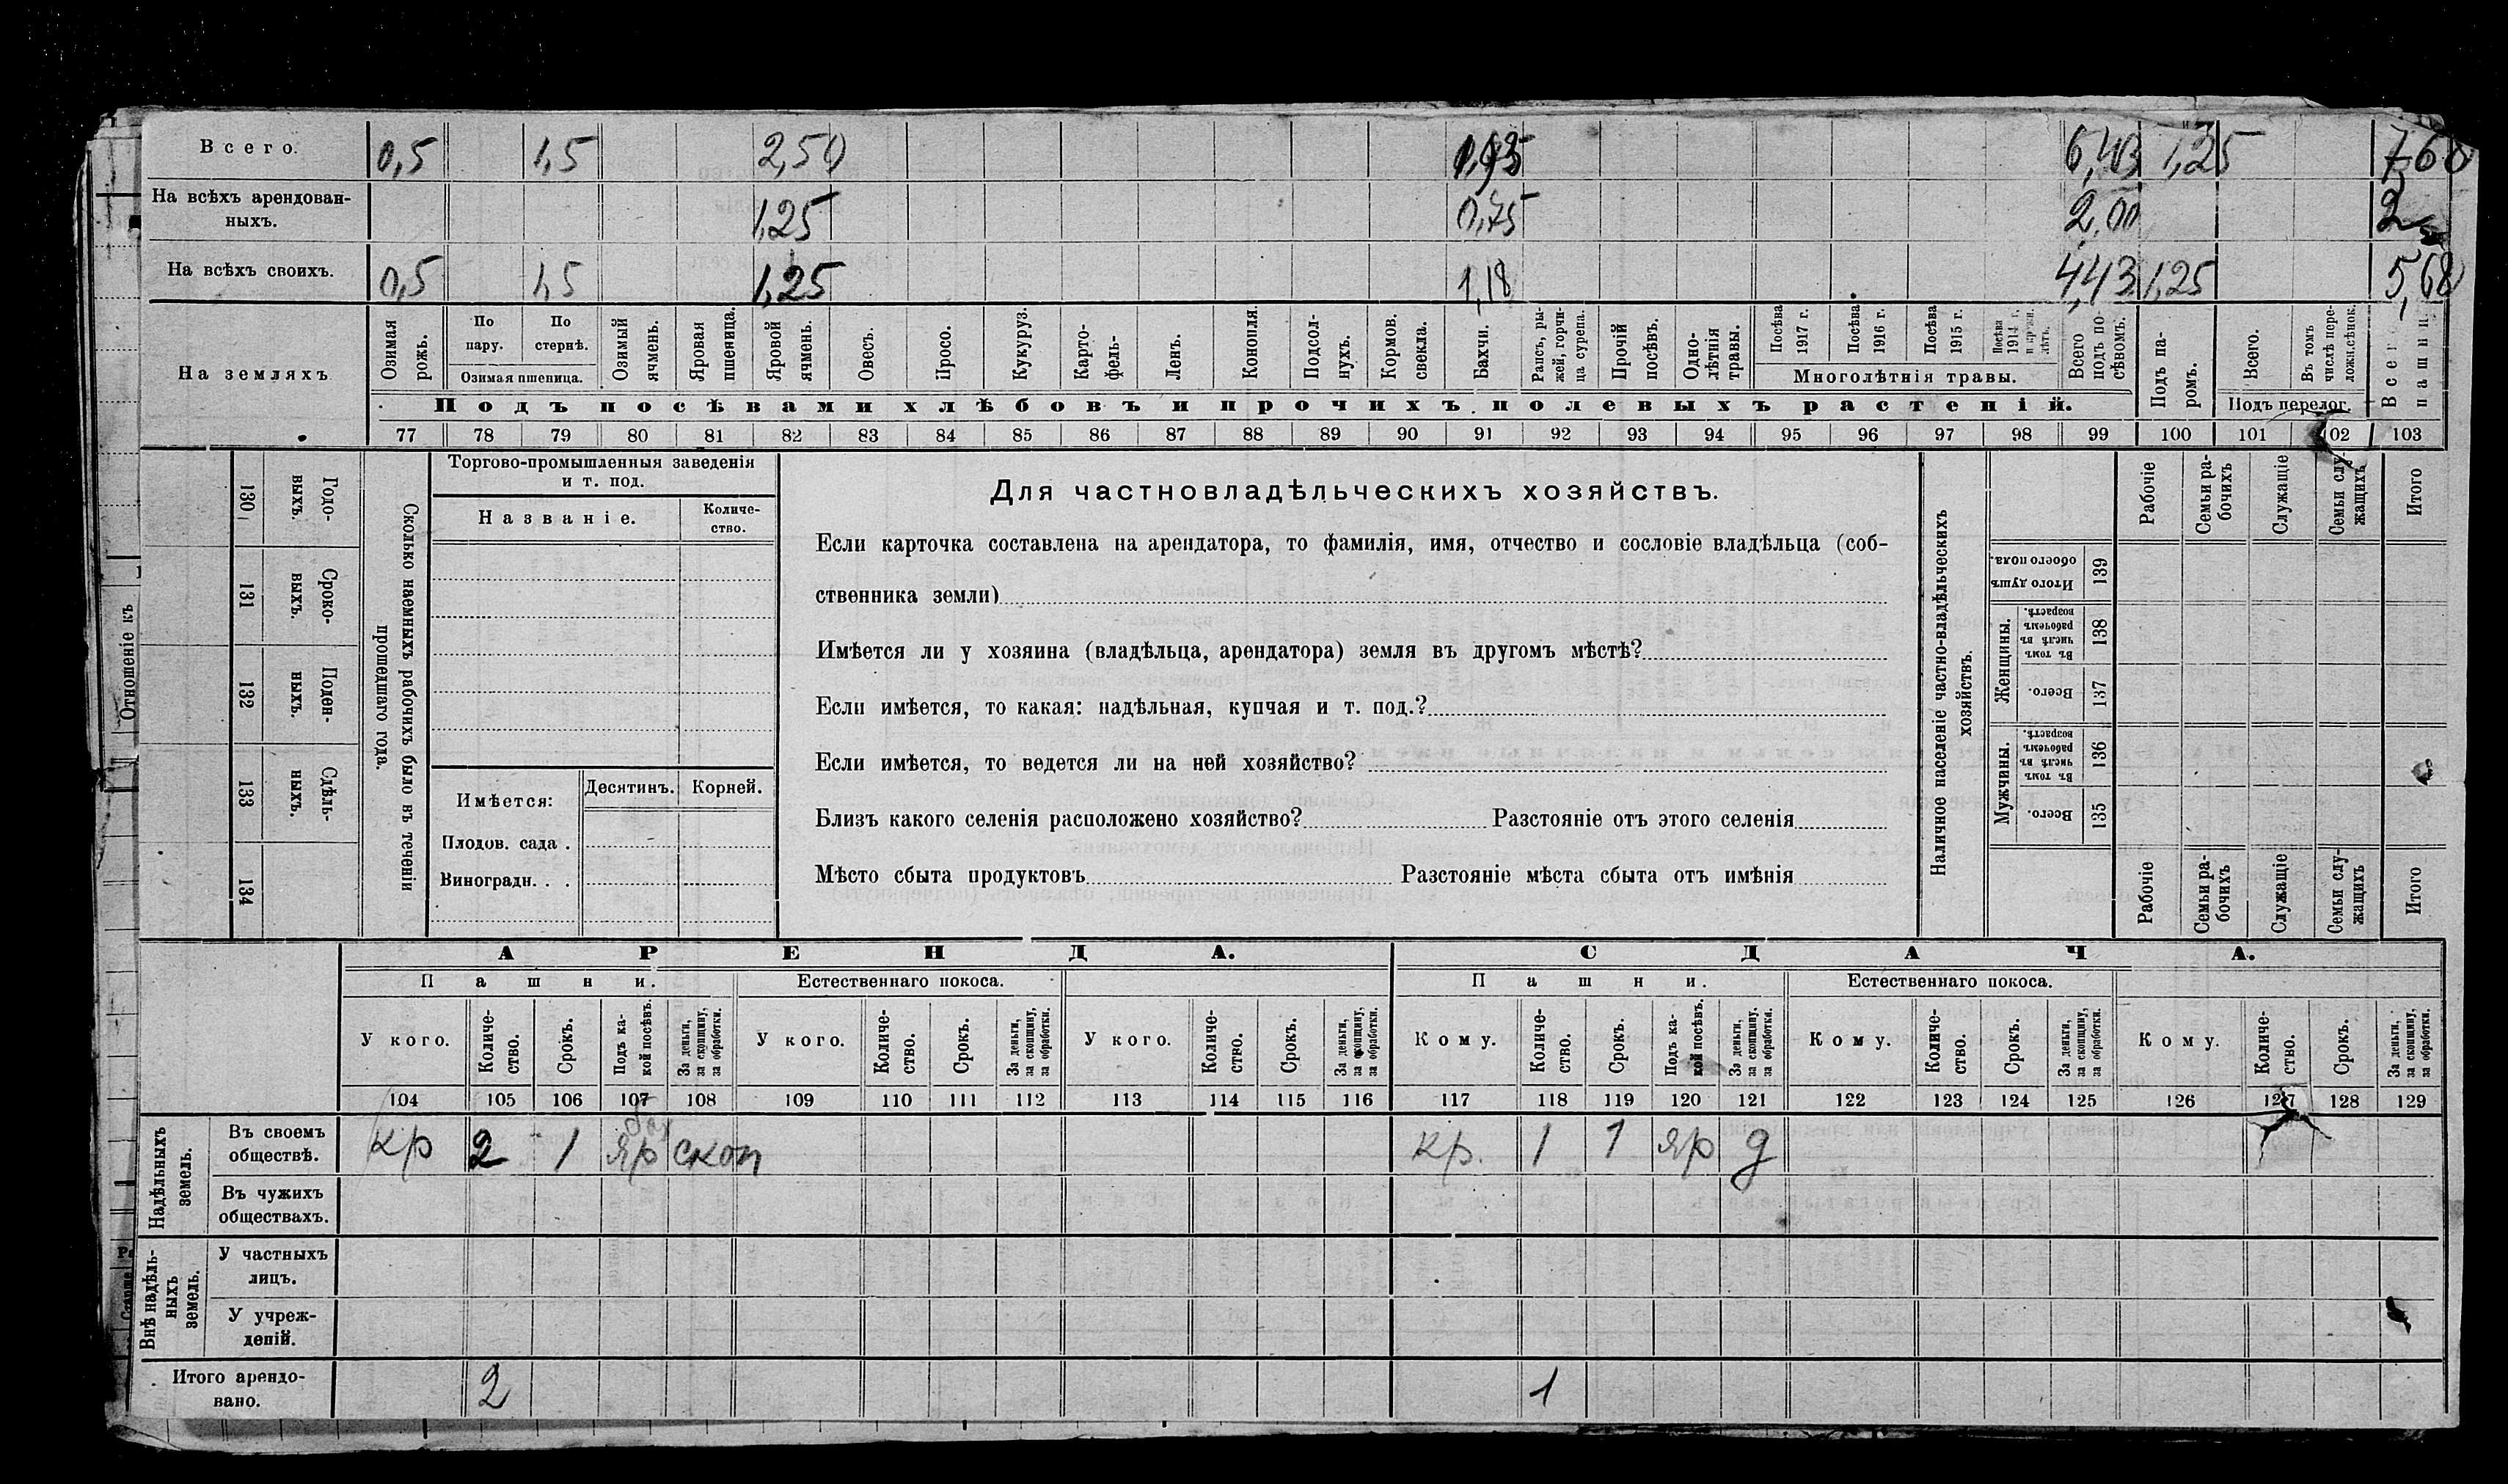 Всего. 0,5 1,5 2,50 6,43 1,25 7,68
На всѣхъ арендован-
ныхъ. 1,25 0,75 2,00 2
На всѣхъ своихъ. 0,5 1,5 1,25 1,18 4,43 1,25 5,68
На земляхъ
Озимая рожь.
По пару.
По стернѣ.
Озимая пшеница.
Озимый ячмень.
Яровая пшеница.
Яровой ячмень.
Овесъ.
Просо.
Кукуруз.
Карто-
фель-
Ленъ.
Конопля.
Подсол-
нухъ.
Кормов.
свекла.
Бахчи.
Рапсъ, ры-
жей, горчи-
ца сурепа.
Прочій
посѣвъ.
Одно-
лѣтнія
травы.
Посѣва
1917 г.
Посѣва
1916 г.
Посѣва
1915 г.
Посѣва
1914 г.
Многолѣтнія травы.
Всего
подъ по
сѣвомъ.
Подъ па-
ромъ.
Всего.
Въ томъ
числѣ пере-
Подъ перелог.
Всего
пашни.
Подъ посѣвами хлѣбовъ и прочихъ полевыхъ растеній.
77 78 79 80 81 82 83 84 85 86 87 88 89 90 91 92 93 94 95 96 97 98 99 100 101 102 103
130 131 132 133 134
Годо-
выхъ.
Сроко-
выхъ.
Поден-
ныхъ.
Сдѣль-
ныхъ.
Сколько наемныхъ рабочихъ было въ теченіи
прошедшаго года.
Отношеніе къ
Торгово-промышленныя заведенія
и т. под.
Названіе.
Количе-
ство.
Имѣется:
Десятинъ. Корней.
Плодов. сада .
Виноградн. . .
Для частновладѣльческихъ хозяйствъ.
Если карточка составлена на арендатора, то фамилія, имя, отчество и сословіе владѣльца (соб-
ственника земли)
Имѣется ли у хозяина (владѣльца, арендатора) земля въ другомъ мѣстѣ?
Если имѣется, то какая: надѣльная, купчая и т. под.?
Если имѣется, то ведется ли на ней хозяйство?
Близъ какого селенія расположено хозяйство? Разстояніе отъ этого селенія
Мѣсто сбыта продуктовъ Разстояніе мѣста сбыта отъ имѣнія
Наличное населеніе частно-владѣльческихъ
хозяйствъ.
Рабочіе
Семьи ра-
бочихъ
Служащіе
Семьи слу-
жащихъ
Итого
Итого душъ
обоего пола.
139
Женщины.
Въ томъ
числѣ въ
рабочемъ
возрастѣ.
138
Всего.
137
Мужчины.
Въ томъ
числѣ въ
рабочемъ
возрастѣ.
136
Всего.
135
Рабочіе
Семьи ра-
бочихъ
Служащіе
Семьи слу-
жащихъ
Итого
АРЕНДА. СДАЧА.
Пашни. Естественнаго покоса. Пашни. Естественнаго покоса.
У кого.
Количе-
ство.
Срокъ.
Подъ ка-
кой посѣвъ.
За деньги,
за скопщину,
за обработки.
У кого.
Количе-
ство.
Срокъ.
За деньги,
за скопщину,
за обработки.
У кого.
Количе-
ство.
Срокъ.
За деньги,
за скопщину,
за обработки.
Кому.
Количе-
ство.
Срокъ.
Подъ ка-
кой посѣвъ.
За деньги,
за скопщину,
за обработки.
Кому.
Количе-
ство.
Срокъ.
За деньги,
за скопщину,
за обработки.
Кому.
Количе-
ство.
Срокъ.
За деньги,
за скопщину,
за обработки.
104 105 106 107 108 109 110 111 112 113 114 115 116 117 118 119 120 121 122 123 124 125 126 127 128 129
Надѣльныхъ
земель.
Въ своемъ
обществѣ. кр 2 1 бах яр скоп кр. 1 1 яр д
Въ чужихъ
обществахъ.
Внѣ надѣль-
ныхъ
земель.
У частныхъ
лицъ.
У учреж-
деній.
Итого арендо-
вано. 2 1